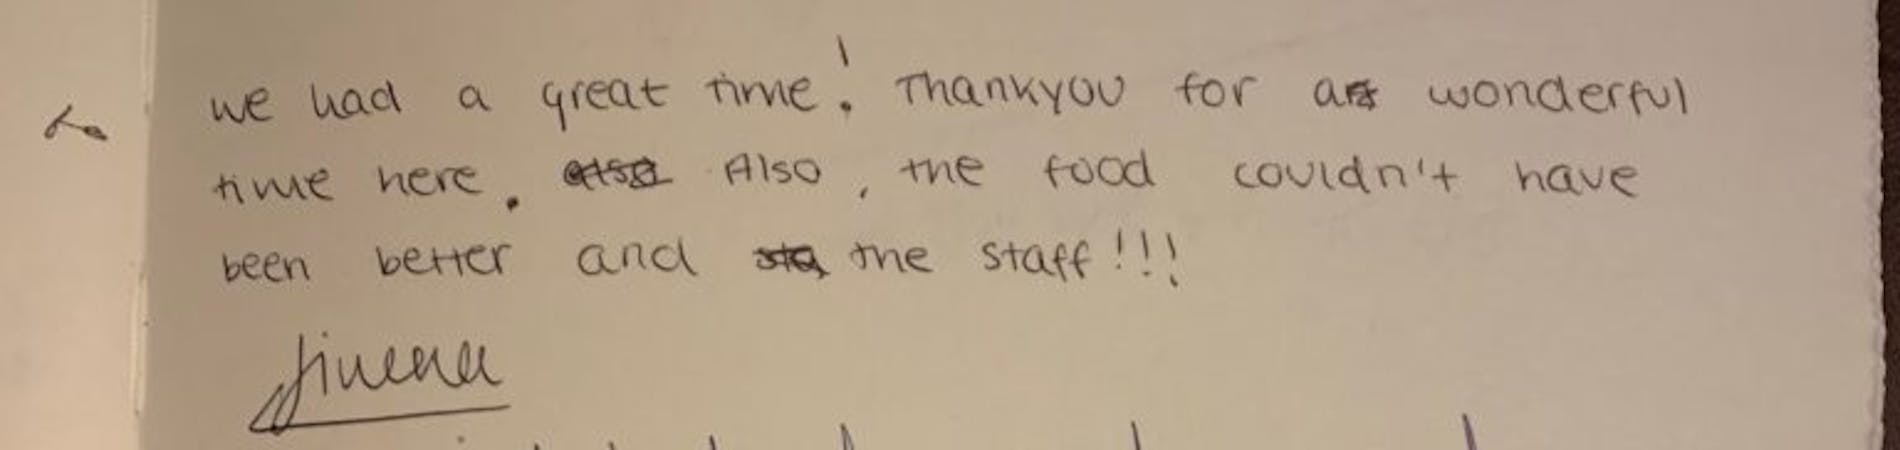 we had a great time! Thankyou for a wonderful
time here. Also, the food couldn't have
been better and the staff!!!
Jimena